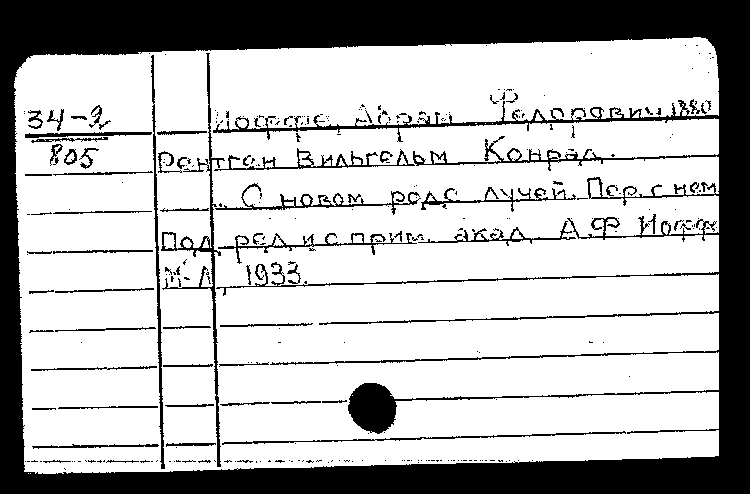 34-2
805
Иоффе, Абрам Федорович, 1880
Рентген Вильгельм Конрад.
... О новом роде лучей. Пер. с нем
Под. ред. и с прим. акад. А.Ф Иоффе
М-Л, 1933.